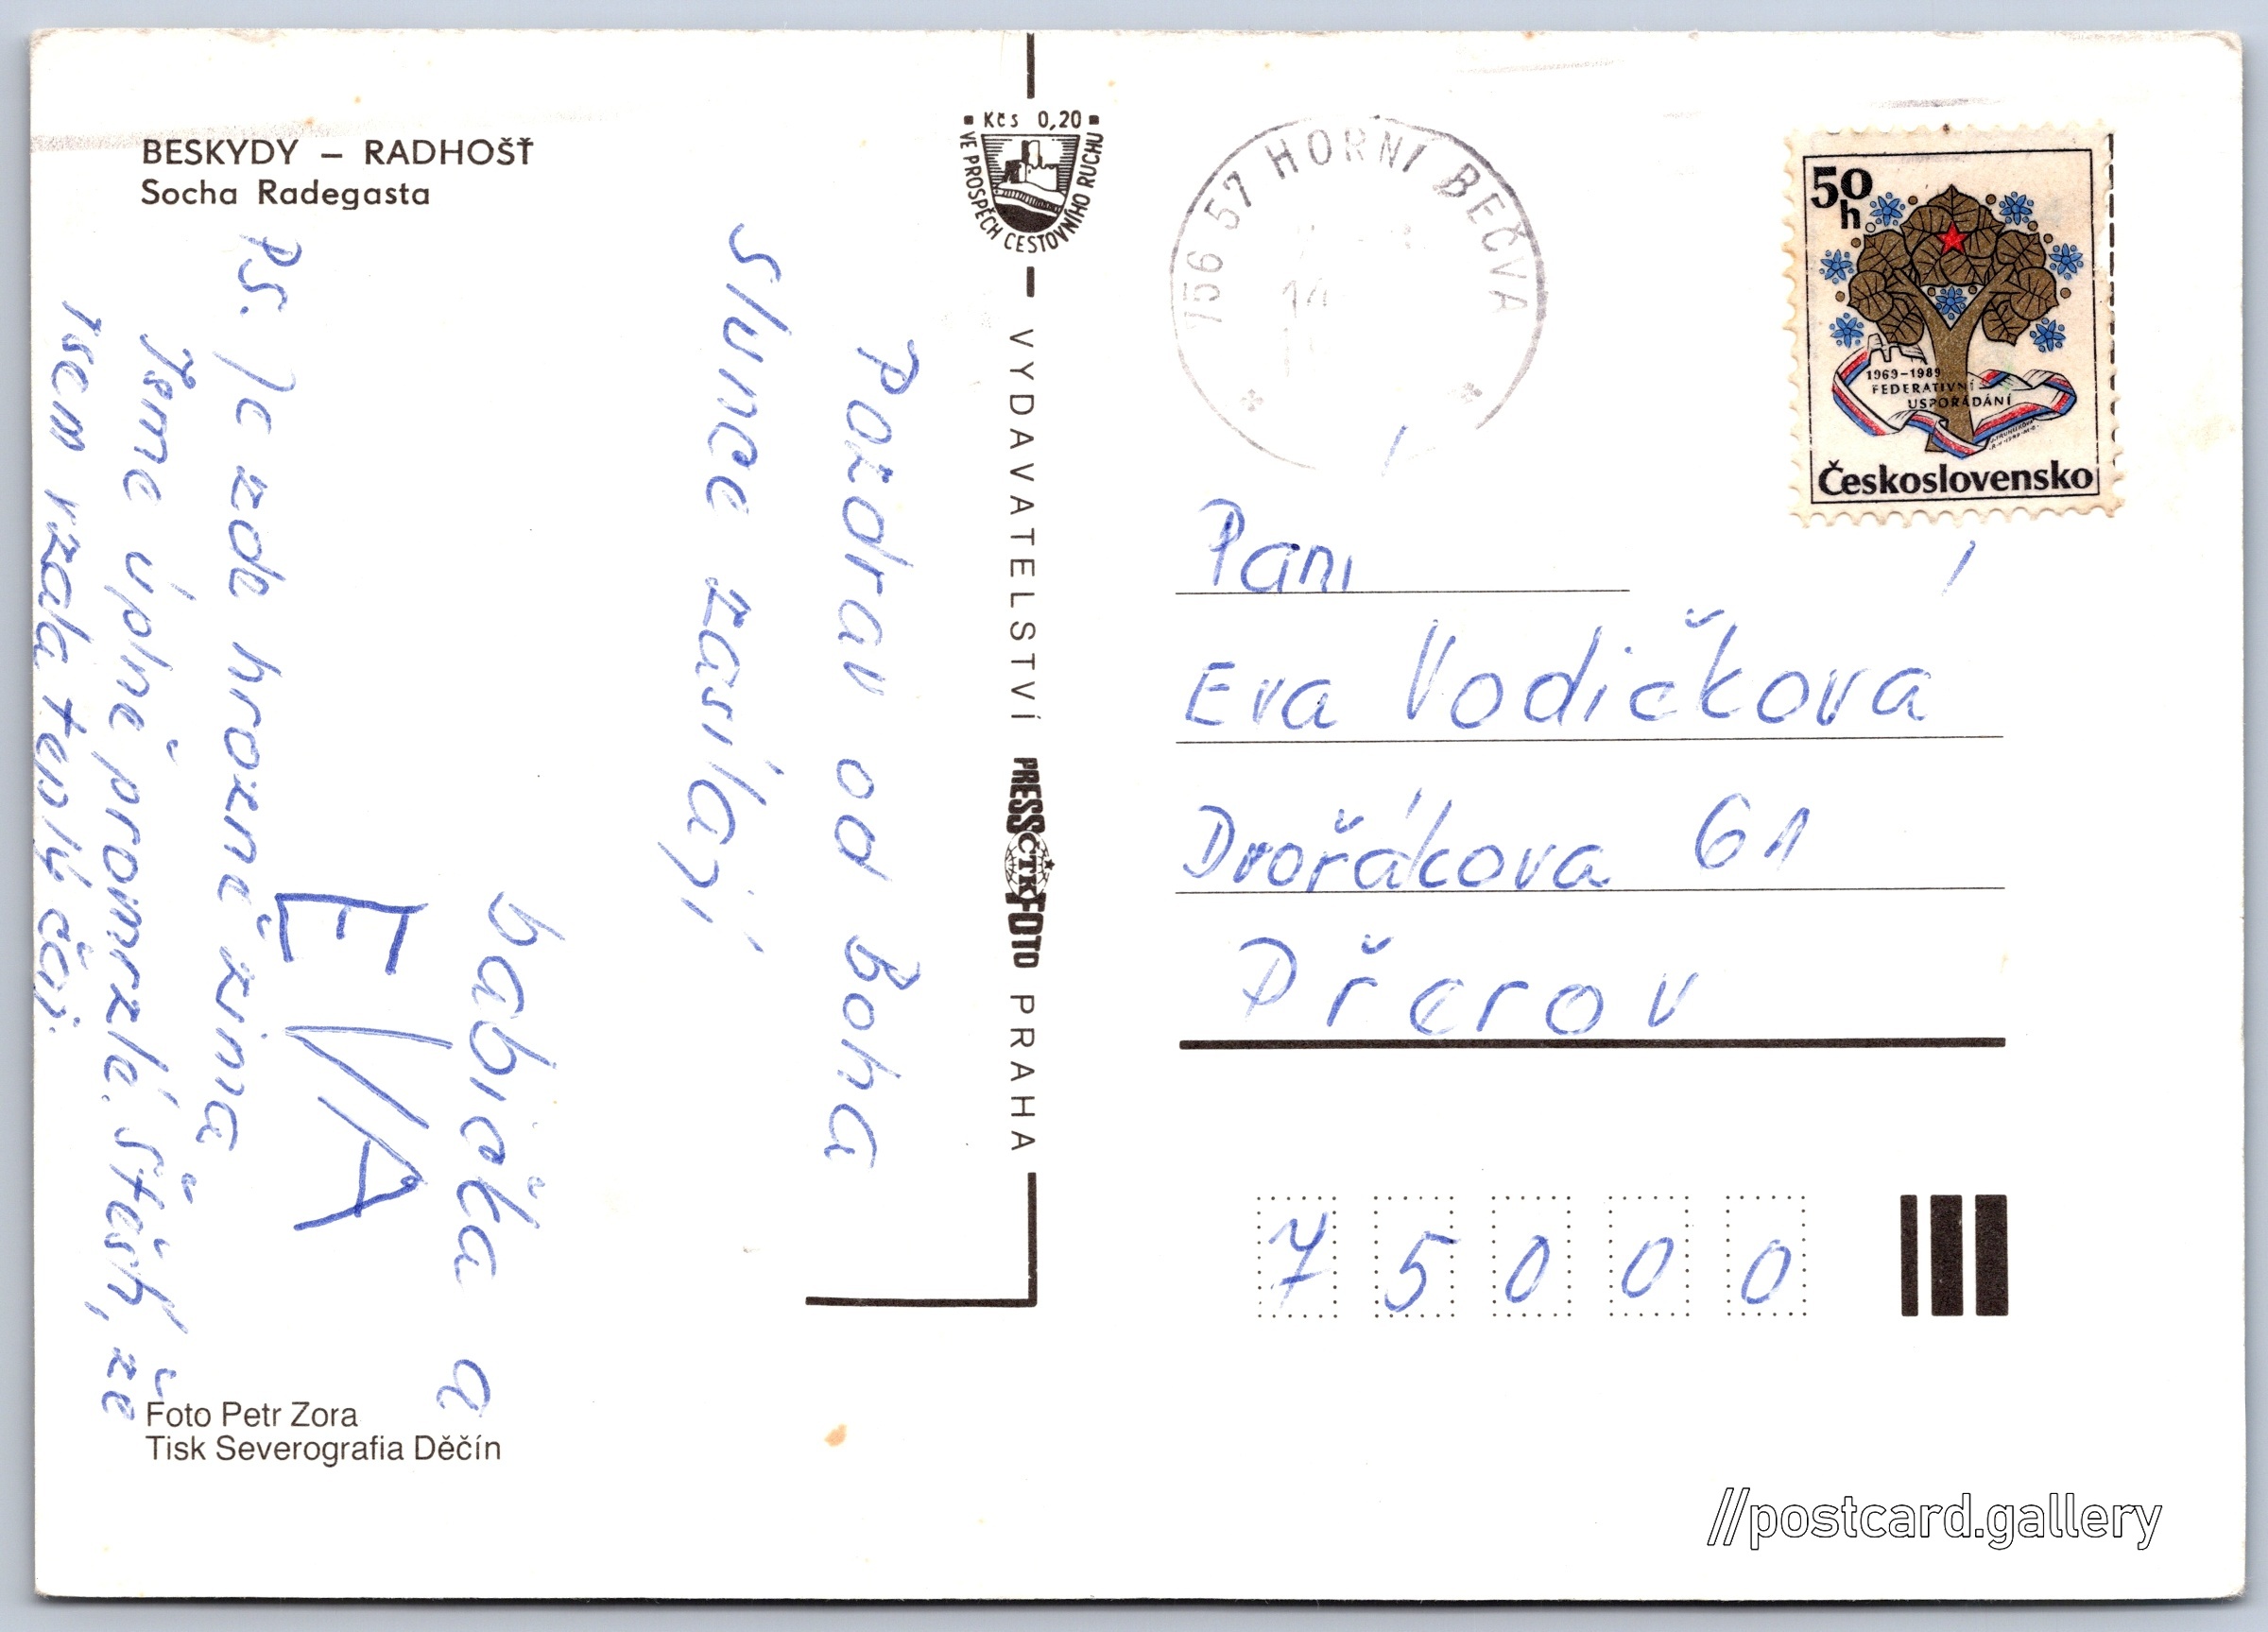 BESKYDY – RADHOŠŤ
Socha Radegasta
Pozdrav od Boha
slunce zasílají
babička a
EVA
PS. Je zde hrozně zima
Jsme úplně promrzlé. Štěstí,
že
jsem vzala teplý čaj.
Foto Petr Zora
Tisk Severografia Děčín
Kčs 0,20
VE PROSPĚCH CESTOVNÍHO RUCHU
VYDAVATELSTVÍ PRESSČTKFOTO PRAHA
756 57 HORNÍ BEČVA
14
50
h
1969–1989
FEDERATIVNÍ
USPOŘÁDÁNÍ
Československo
Paní
Eva Vodičková
Dvořákova 61
Přerov
75000
//postcard.gallery